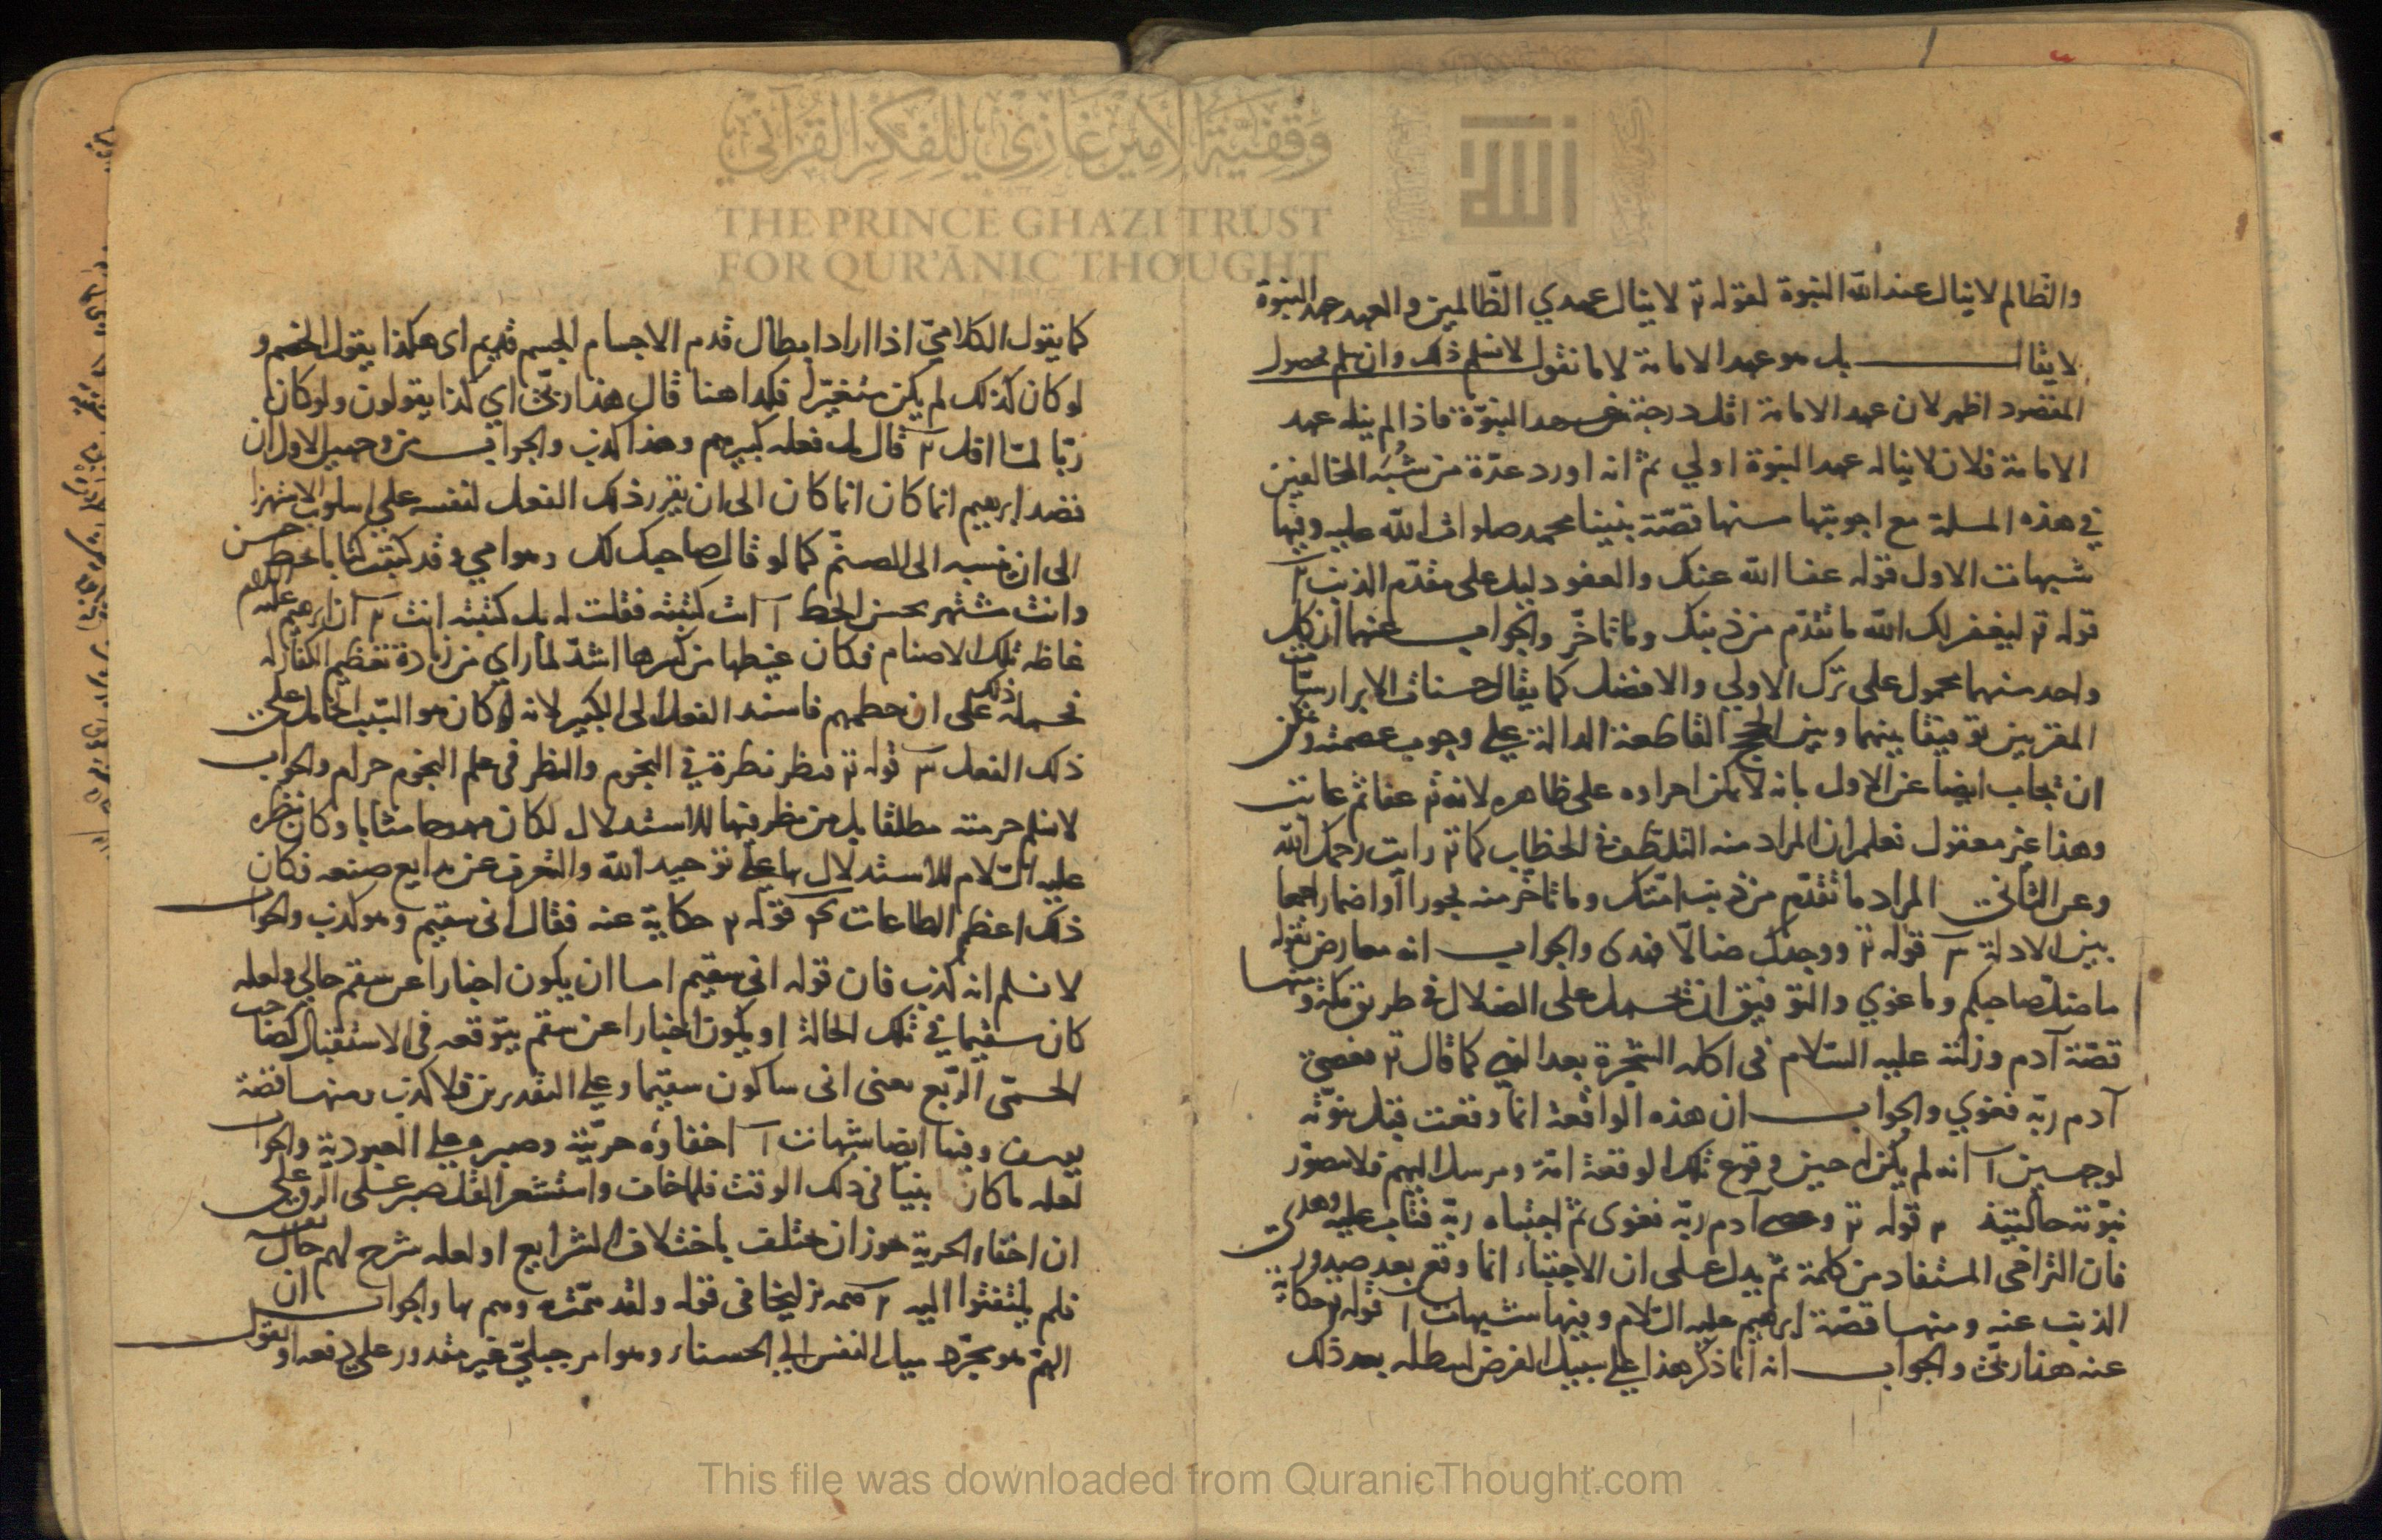 وقفية الأمير غازي للفكر القرآني
THE PRINCE GHAZI TRUST
FOR QUR'ĀNIC THOUGHT
الله
والظالم لا ينال عند الله النبوة لقوله تع لا ينال عهدي الظالمين والعهد عهد النبوة
لا يقال بل هو عهد الامامة لانا نقول لا نسلم ذلك وان سلم فحصول
المقصود اظهر لان عهد الامامة اقل درجة من عهد النبوّة فاذا لم ينله عهد
الامامة فلان لا يناله عهد النبوة اولي ثم انه اورد عدّة من شُبَه المخالفين
في هذه المسلة مع اجوبتها منها قصّة نبينا محمد صلوات الله عليه وفيها
شبهات الاول قوله عفا الله عنك والعفو دليل على مقدّم الذنب ٢
قوله تع ليغفر لك الله ما تقدّم من ذنبك وما تاخّر والجواب عنهما ان كل
واحد منهما محمول على ترك الاولي والافضل كما يقال حسنات الابرار سيّات
المقربين توفيقا بينهما وبين الحجج القاطعة الدالة علي وجوب عصمته ويمكن
ان يجاب ايضا عن الاول بانه لا يمكن اجراءه على ظاهره لانه تع عفا ثم عاتب
وهذا غير معقول فعلم ان المراد منه التلطف في الخطاب كما تع رايت رحمك الله
وعن الثاني المراد ما تقدّم من ذنب امّتك وما تاخر منه تجوزا او اضمارا جمعا
بين الادلة ٣ قوله تع ووجدك ضالّا فهدى والجواب انه معارض بقوله
ما ضلّ صاحبكم وما غوي والتوفيق ان يحمل على الضلال في طريق مكة ومنها
قصّة آدم وزلته عليه السّلام في اكله الشجرة بعد النهي كما قال تع فعصى
آدم ربّه فغوي والجواب ان هذه الواقعة انما وقعت قبل نبوّته
لوجهين آ انه لم يكن له حين وقوع تلك الوقعة امّة ومرسل اليهم فلا يتصوّر
نبوّته حالتيذ ٢ قوله تع وعصى آدم ربّه فغوى ثم اجتباه ربّه فتاب عليه وهدى
فان التراخي المستفاد من كلمة ثمّ يدل على ان الاجتباء انما وقع بعد صدور
الذنب عنه ومنها قصّة ابرهيم عليه السّلام وفيها شبهات ١ قوله تع حكاية
عنه هذا ربّي والجواب انه انما ذكر هذا على سبيل الفرض ليبطله بعد ذلك
كما يقول الكلاميّ اذا اراد ابطال قدم الاجسام الجسم قديم اى هكذا يقول الخصم و
لو كان كذلك لم يكن متغيّرا فكذا هنا قال هذا ربّي اي كذا يقولون ولو كان
ربّا لمّا افل ٢ قال بل فعله كبيرهم وهذا كذب والجواب من وجهين الاول ان
قصد ابرهيم انما كان انما كان الى ان يقرر ذلك الفعل لنفسه على اسلوب الاستهزا
الى ان ينسبه الى الصنم كما لو قال صاحبك لك وهو امي وقد كتبت كتابا بخط حسن
وانت مشتهر بحسن الخط آ انت كتبته فقلت له بل كتبته انت ٢ ان ابرهيم عليه السلام
غاظه تلك الاصنام فكان غيظها من كبيرها اشدّ لما راي من زيادة تعظيم الكفار له
فحمله ذلك على ان حطمهم فاسند الفعل الى الكبير لانه كان هو السّبب الحامل على
ذلك الفعل ٣ قوله تع فنظر نظرة في النجوم والنظر في علم النجوم حرام والجواب
لا نسلم حرمته مطلقا بل من نظر فيها للاستدلال لكان ممدوحا مثابا وكان نظره
عليه السّلام للاستدلال بها على توحيد الله والتعرف عن بدايع صنعه فكان
ذلك اعظم الطاعات ٤ قوله تع حكاية عنه فقال اني سقيم وهو كذب والجواب
لا نسلم انه كذب فان قوله اني سقيم اما ان يكون اخبارا عن سقم حالي ولعله
كان سقيما في تلك الحالة او يكون اخبارا عن سقم يتوقعه في الاستقبال كصاحب
الحمّى الرّبع بمعنى اني ساكون سقيما وعلي التقديرين فلا كذب ومنها قصّة
يوسف وفيها ايضا شبهات آ اخفاؤه حرّيّته وصبره على العبودية والجواب
لعله ما كان نبيّا في ذلك الوقت فلما خاف واستشعر القتل صبر على الرق على
ان اخفاء الحرية جوز ان يختلف باختلاف الشرايع او لعله شرح لهم حاله
فلم يلتفتوا اليه ٢ همه بزليخا في قوله ولقد همّت به وهم بها والجواب ان
الهمّ هو مجرّد ميل النفس الى الحسناء وهو امر جبليّ غير مقدور على دفعه او نقول
This file was downloaded from QuranicThought.com